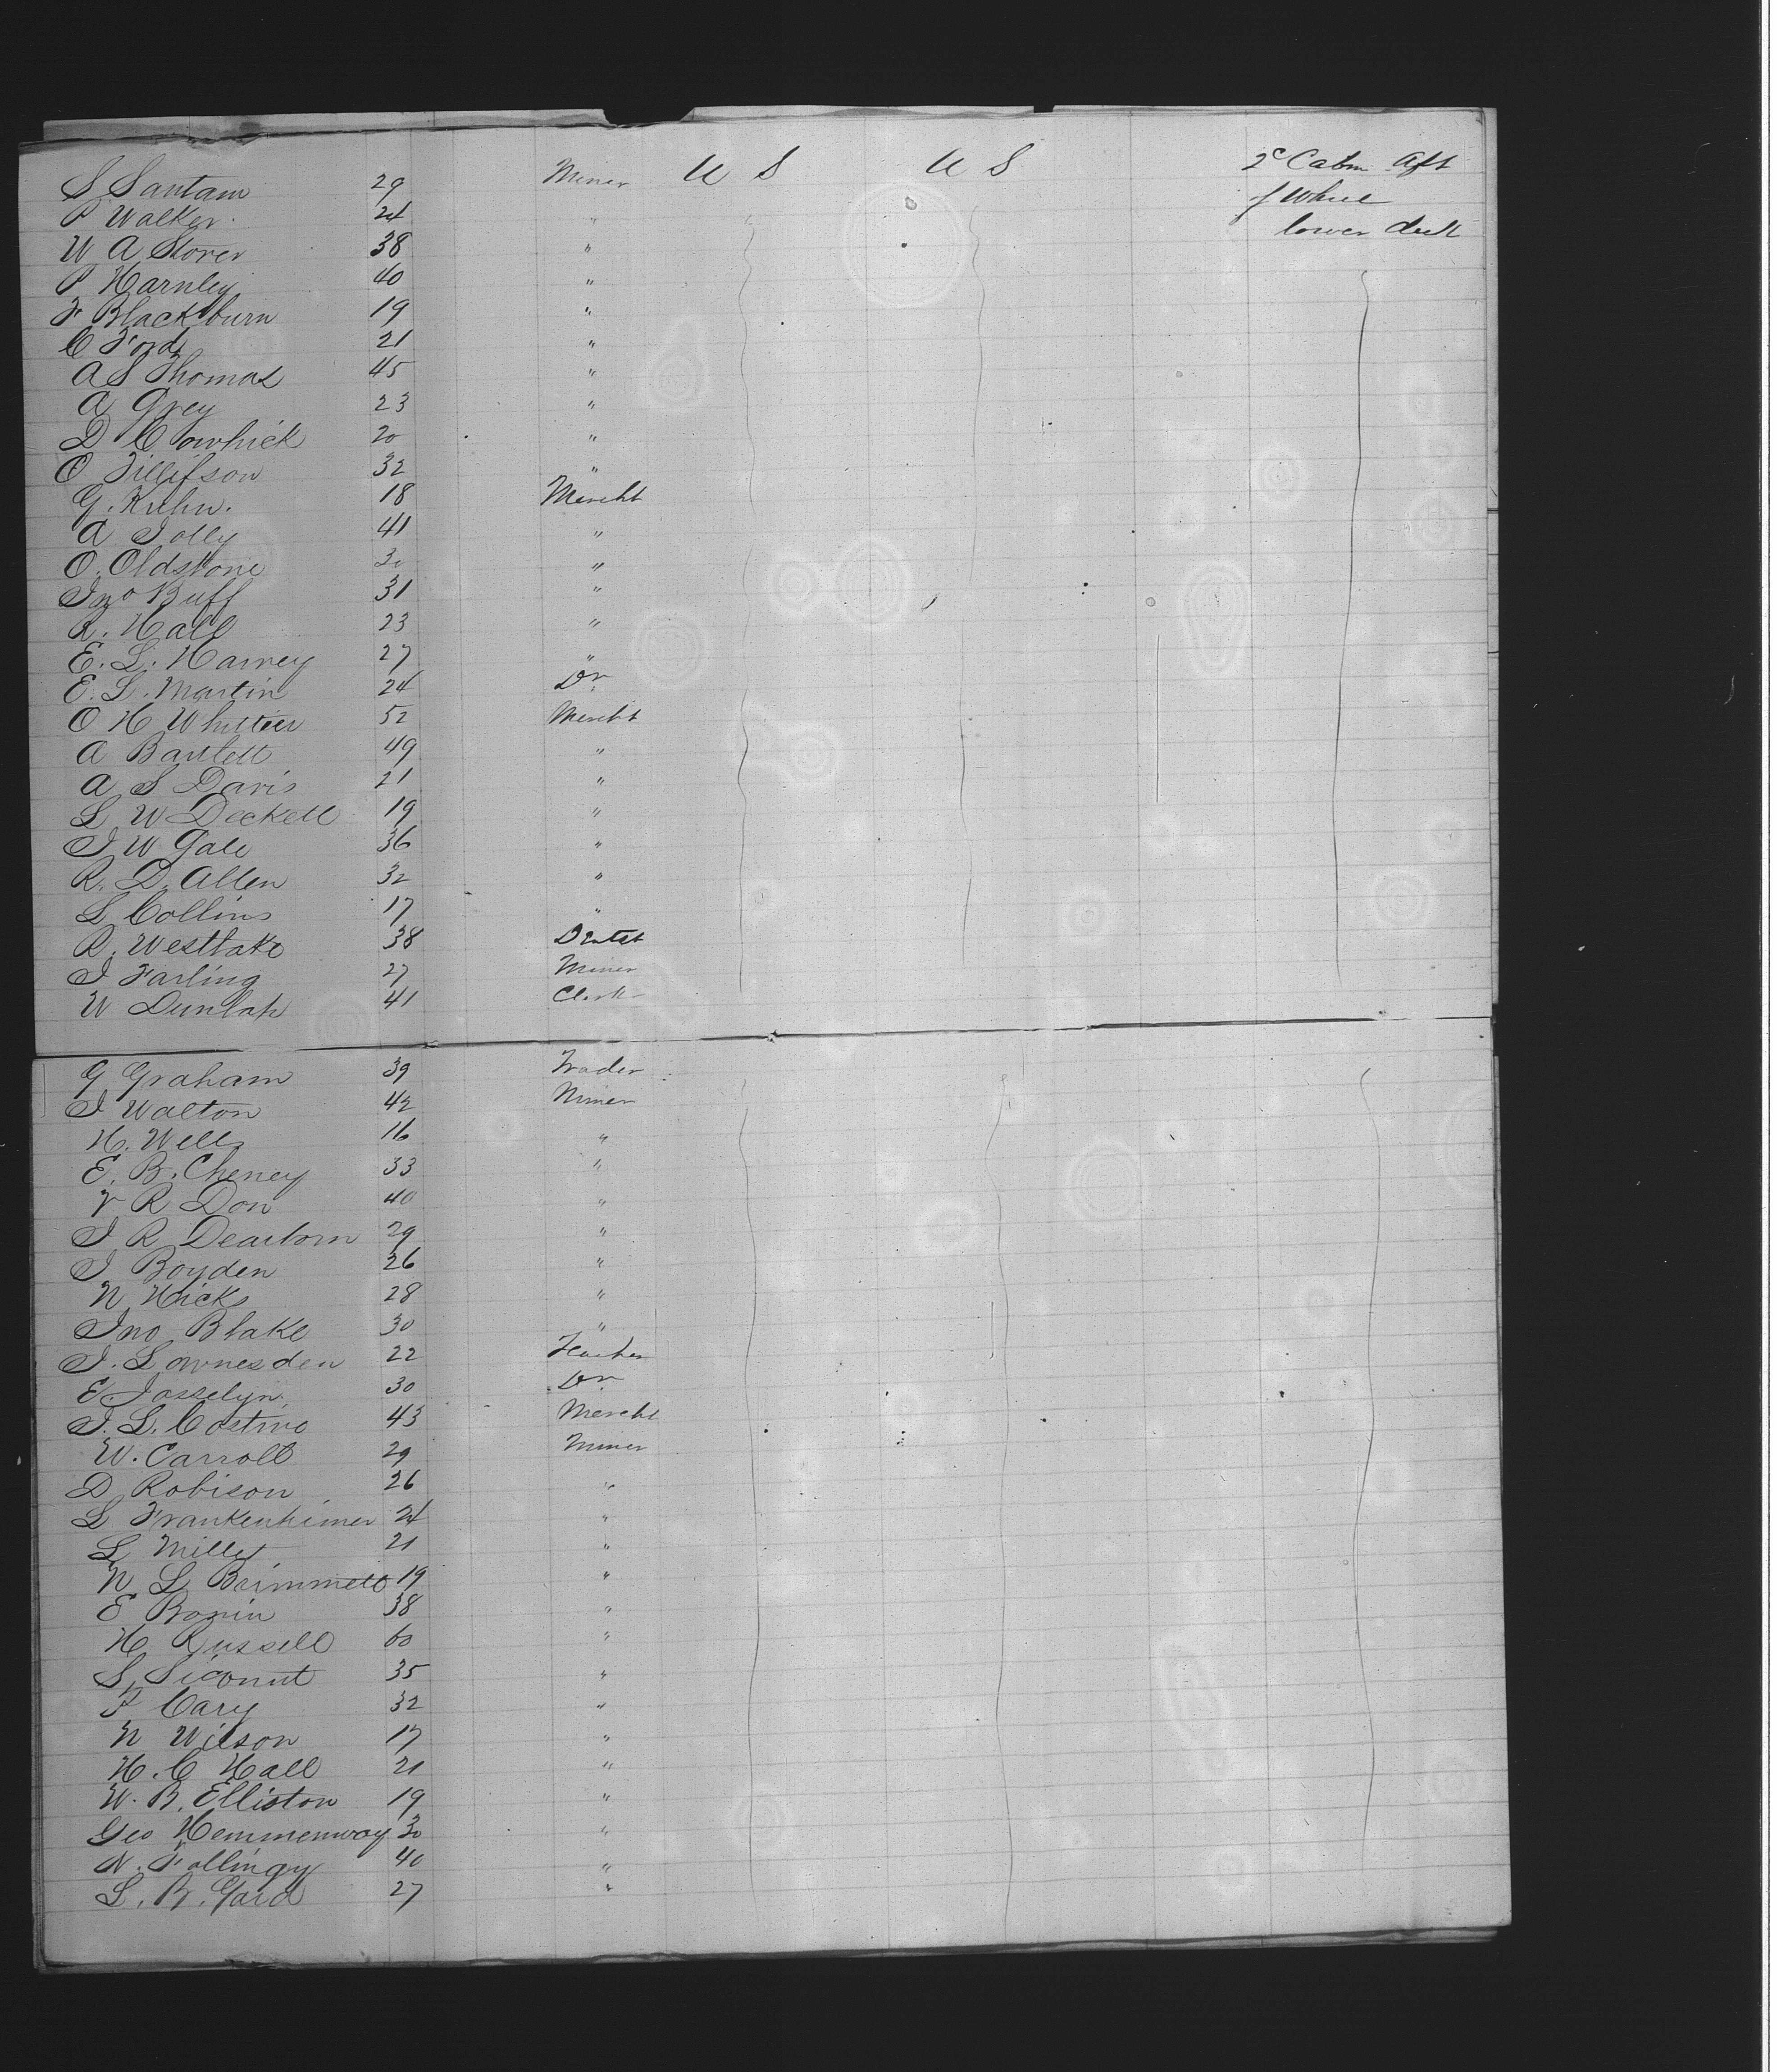 S Santam 29 Miner U S U S 2c Cabin Aft
P Walker 24 " f Wheel
W A Storer 38 " lower deck
P Harnley 40 "
F Blackburn 19 "
C Ford 21 "
A S Thomas 45 "
A Grey 23 "
D Cowhick 20 "
O Tillifson 32 "
G. Kuhn. 18 Mercht
A Jolly 41 "
O. Oldstone 30 "
Jno Buff 31 "
R. Hall 23 "
E. L. Harvey 27 "
E. L. Martin 24 Dr
O H Whittier 52 Mercht
A Bartlett 49 "
A S Davis 21 "
L W Deckett 19 "
J W Gale 36 "
R. D. Allen 32 "
L Collins 17 "
R. Westlake 38 Dentst
J Farling 27 Miner
W Dunlap 41 Clerk
G Graham 39 Trader
J Walton 42 Miner
H. Wells 16 "
E. B. Cheney 33 "
V R Don 40 "
J R Dearborn 29 "
J Boyden 26 "
N Hicks 28 "
Jno Blake 30 "
J. Lownesden 22 Teacher
E. Josselyn 30 Dr
J. L. Costino 43 Mercht
W. Carroll 29 Miner
D Robison 26 "
L Frankenhimer 24 "
L Miller 21 "
N L Brimmell 19 "
E Bonin 38 "
H Russell 60 "
S. 35 "
P Cary 32 "
N Wilson 17 "
H. C Hall 21 "
W. B. Elliston 19 "
Geo Hemmenway 30 "
N. Follingy 40 "
L. B. Gard 27 "